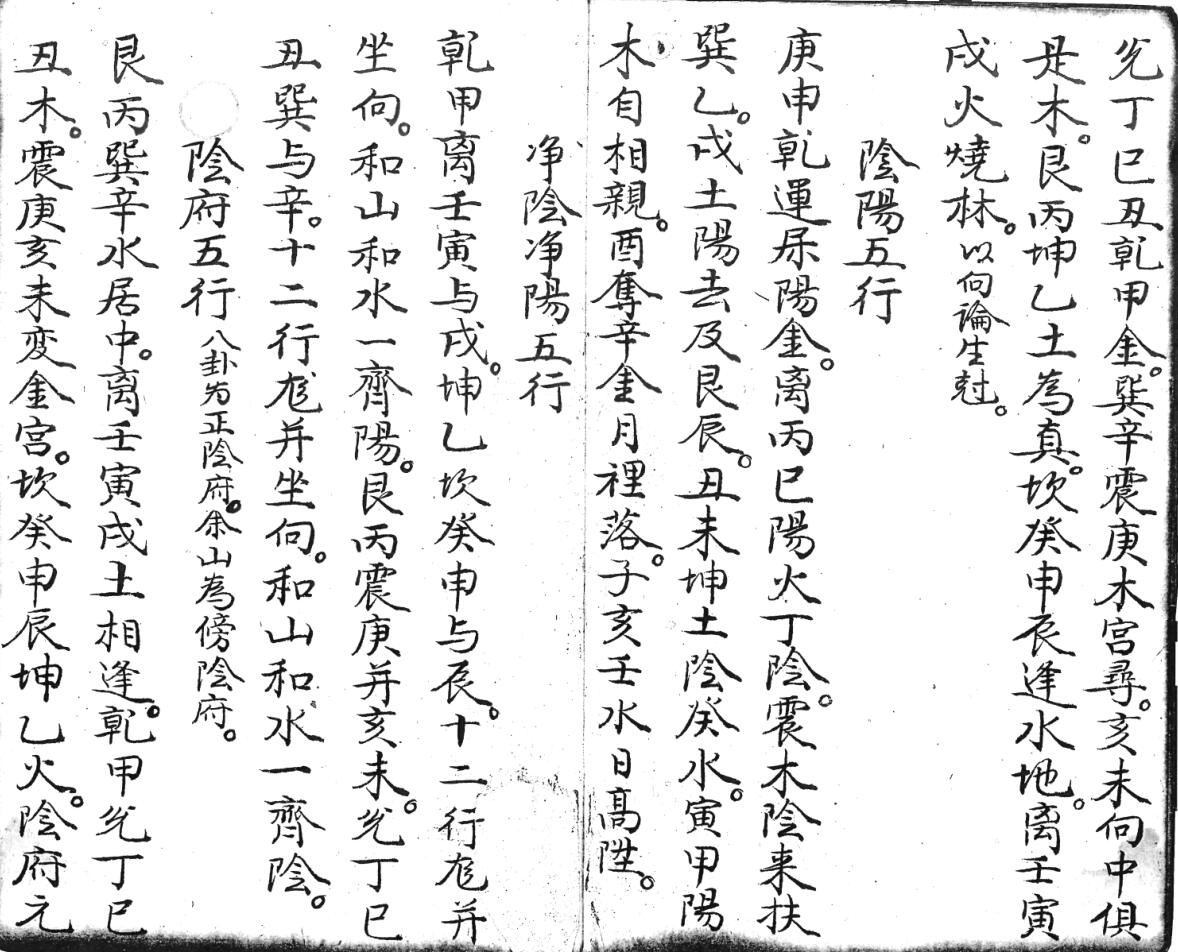 兊丁巳丑乾甲金。巽辛震庚木宮尋。亥未向中俱
是木。艮丙坤乙土為真。坎癸申辰逢水地。离壬寅
戌火燒林。以向論生尅。
陰陽五行
庚申乾運屎陽金。离丙巳陽火丁陰。震木陰来扶
巽乙。戌土陽去及艮辰。丑未坤土陰癸水。寅甲陽
木自相親。酉奪辛金月裡落。子亥壬水日高陞。
净陰净陽五行
乾甲离壬寅与戌。坤乙坎癸申与辰。十二行龙并
坐向。和山和水一齊陽。艮丙震庚并亥未。兊丁巳
丑巽与辛。十二行龙并坐向。和山和水一齊陰。
陰府五行 八卦为正陰府。余山為傍陰府。
艮丙巽辛水居中。离壬寅戌土相逢。乾甲兊丁巳
丑木。震庚亥未变金宫。坎癸申辰坤乙火。陰府元